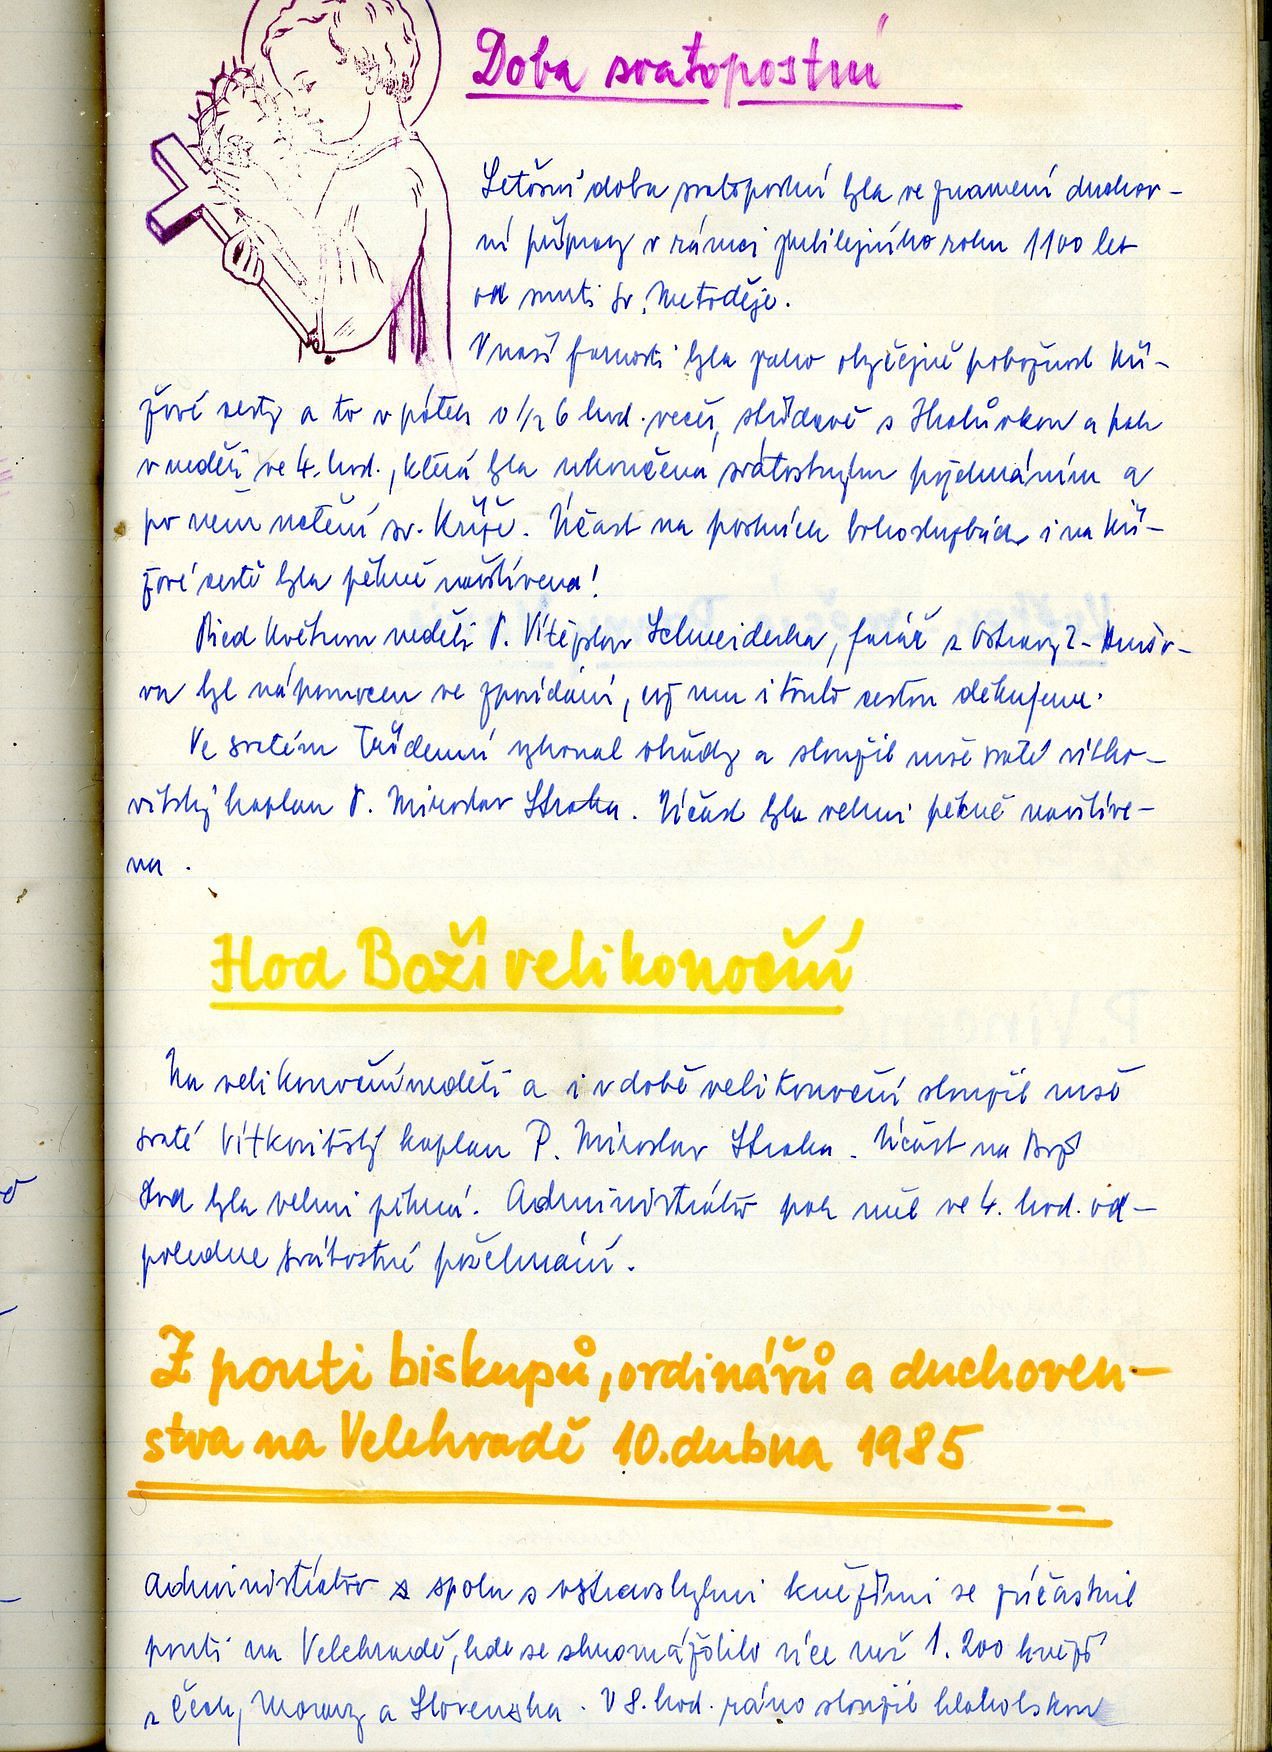 Doba svatopostní
Letošní doba svatopostní byla ve znamení duchov-
ní přípravy v rámci jubilejního roku 1100 let
od smrti sv. Metoděje.
V naší farnosti byla jako obyčejně pobožnost kří-
žové cesty a to v pátek v 1/2 6 hod. večer, střídavě s Hrabůvkou a pak
v neděli ve 4. hod., která byla ukončena svátostným požehnáním a
po něm uctění sv. Kříže. Účast na postních bohoslužbách i na kří-
žové cestě byla pěkně navštívena!
Před Květnou nedělí P. Vítězslav Schneiderka, farář z Ostravy 2-
va byl nápomocen ve zpovídání, což mu i touto cestou děkujeme.
Ve svatém Třídenní vykonal obřady a sloužil mše svaté vítko-
vický kaplan P. Miroslav Straka. Účast byla velmi pěkně navštíve-
na.
Hod Boží velikonoční
Na velikonoční neděli a i v době velikonoční sloužil mše
svaté Vítkovický kaplan P. Miroslav Straka. Účast na Boží
Hod byla velmi pěkná. Administrátor pak měl ve 4. hod. od-
poledne svátostné požehnání.
Z pouti biskupů, ordinářů a duchoven-
stva na Velehradě 10. dubna 1985
Administrátor s spolu s ostravskými kněžími se zúčastnil
pouti na Velehradě, kde se shromáždilo více než 1.200 kněží
z Čech, Moravy a Slovenska. V 8. hod. ráno sloužil hlaholskou